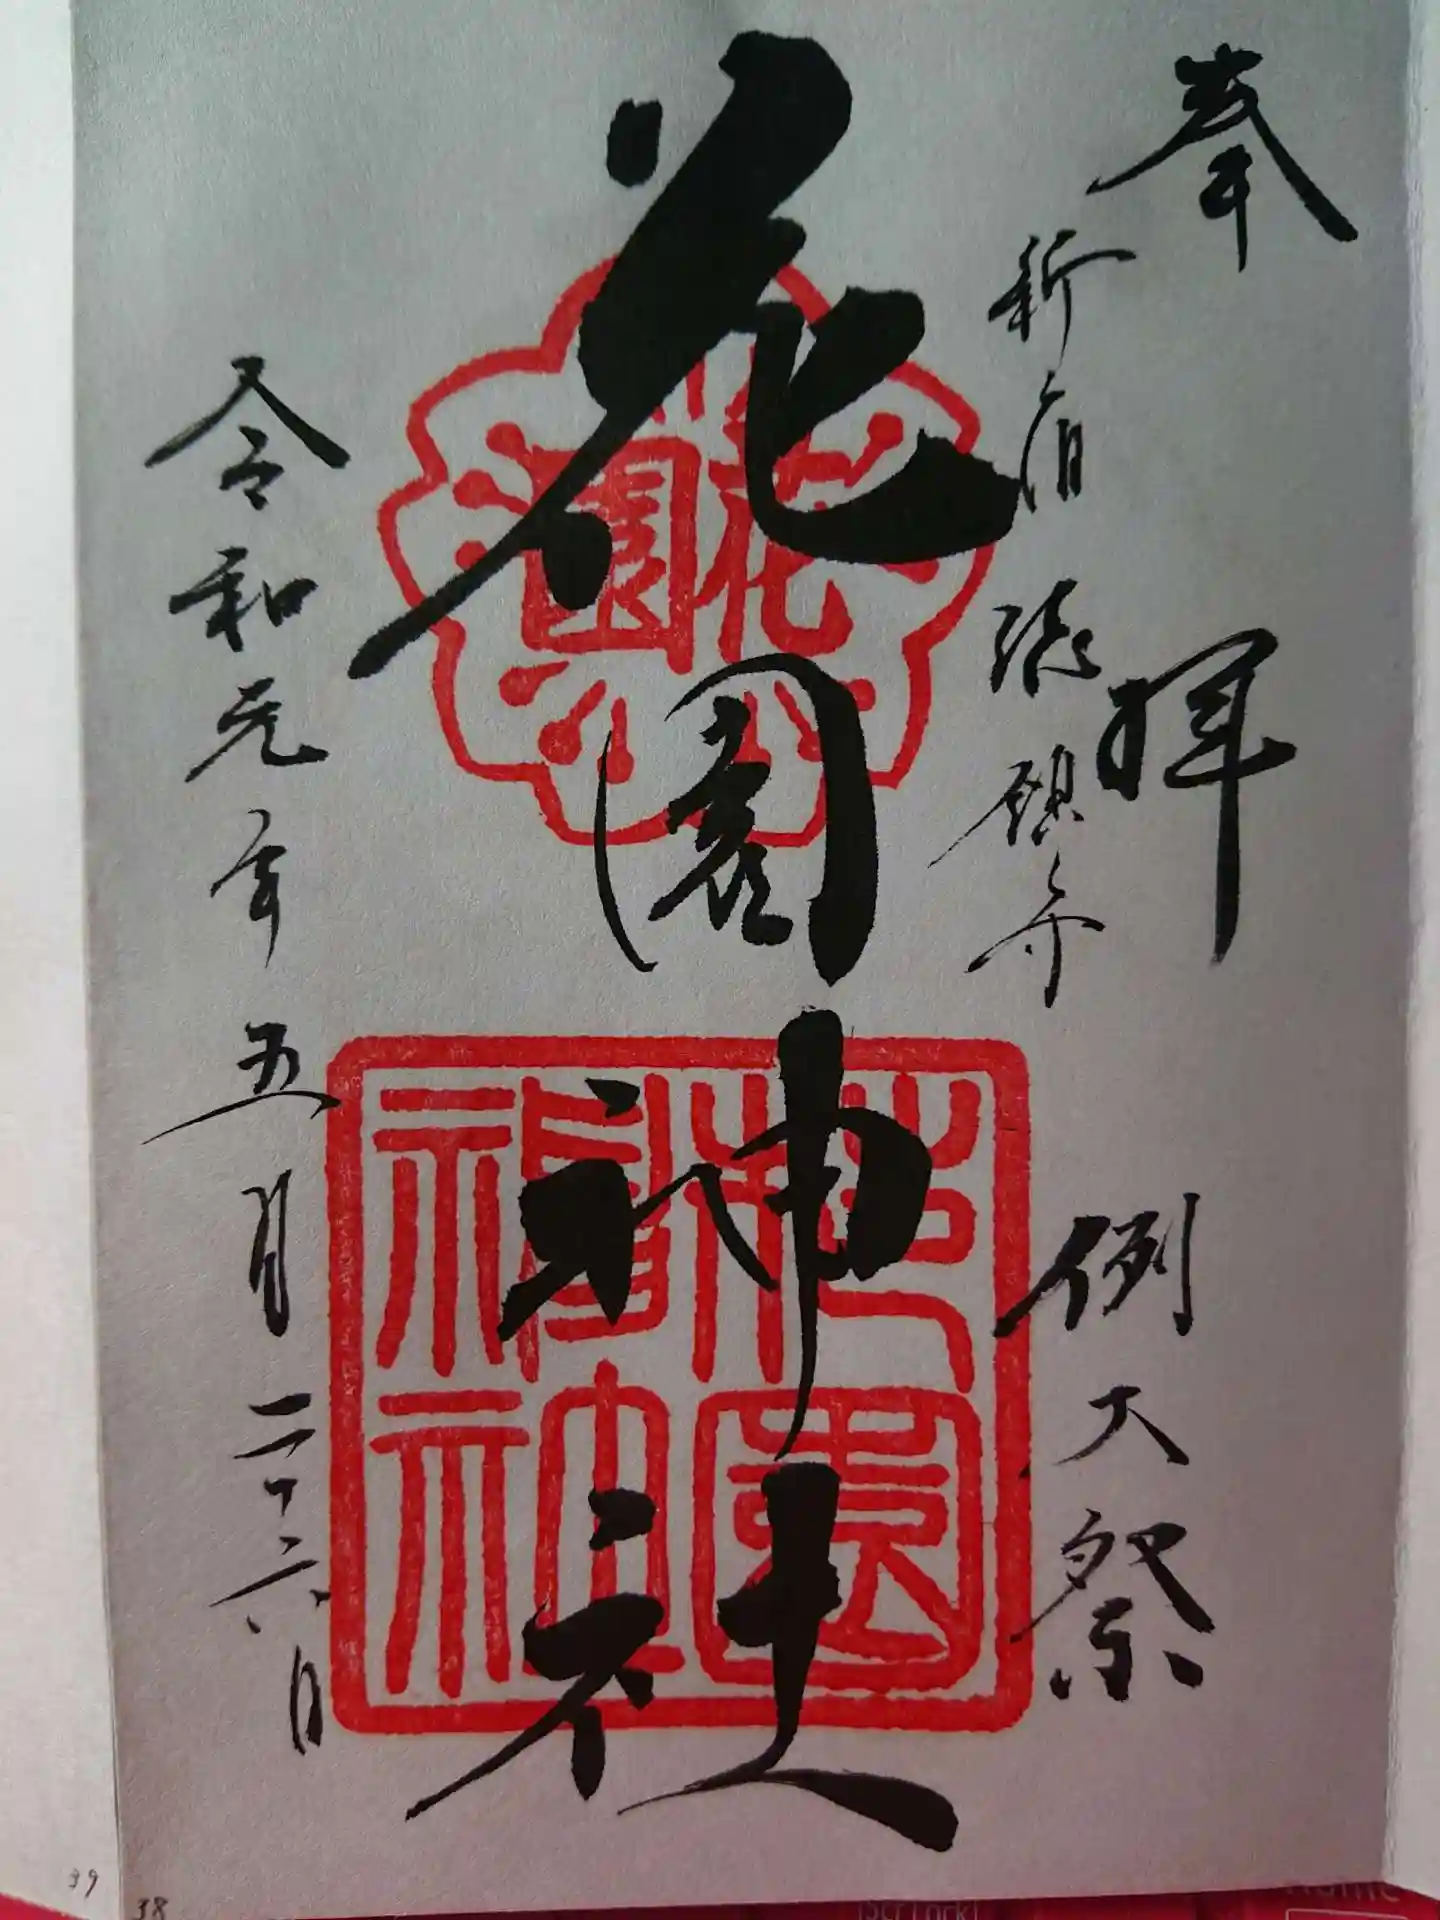 奉拝
新宿総鎮守
例大祭
花園神社
花園
花園神社
令和元年五月二十六日
39
38
Scr Lock
Home